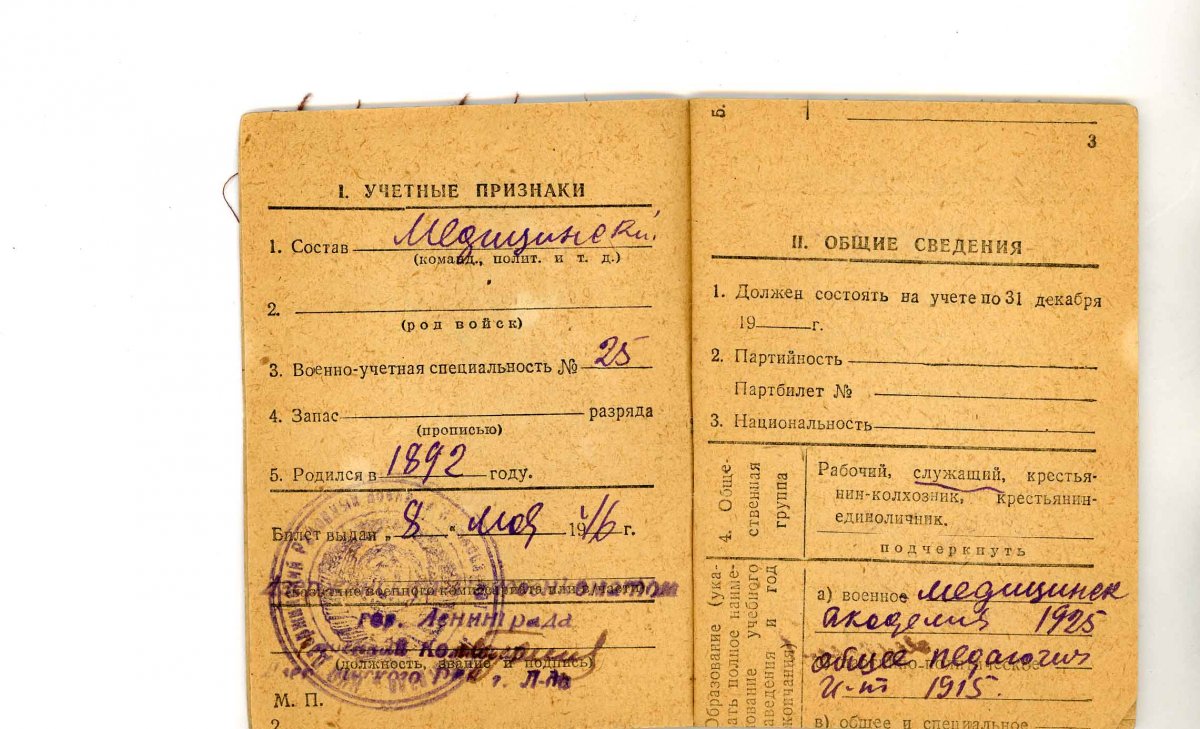 I. УЧЕТНЫЕ ПРИЗНАКИ
1. Состав Медицинский
(команд., полит. и т. д.)
2.
(род войск)
3. Военно-учетная специальность № 25
4. Запас разряда
(прописью)
5. Родился в 1892 году.
Билет выдан „8" мая 1946 г.
(название военного комиссариата или в/части)
гор. Ленинграда
(должность, звание и подпись)
г. Л-да
М. П.
2
Б.
3
II. ОБЩИЕ СВЕДЕНИЯ
1. Должен состоять на учете по 31 декабря
19 г.
2. Партийность
Партбилет №
3. Национальность
4. Общественная
группа
Рабочий, служащий, крестья-
нин-колхозник, крестьянин-
единоличник.
подчеркнуть
Образование (ука-
зать полное наиме-
нование учебного
заведения и год
окончания)
а) военное Медицинск
Академия 1925
общее педагогич
И-т 1915.
в) общее и специальное